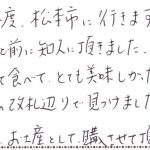 度、松本市に行きます
で前に知人に頂きました.
て食べて、とても美味しかった
の改札辺りで見つけました
、お土産として、購させて頂